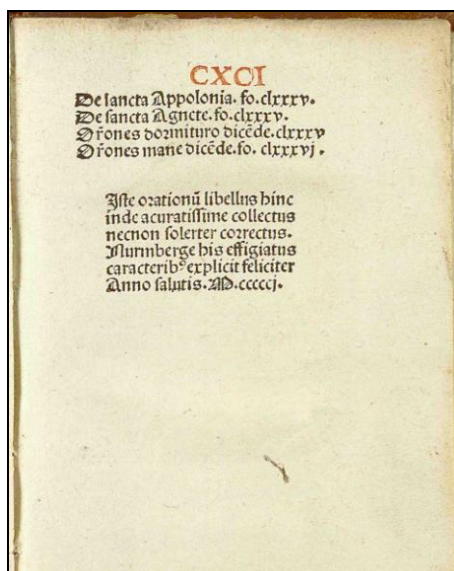 CXCI
De sancta Appolonia. fo. clxxxv.
De sancta Agnete. fo. clxxxv.
Or̃ones dormituro dicẽde. clxxxv
Or̃ones mane dicẽde. fo. clxxxvj.
Iste orationũ libellus hinc
inde acuratissime collectus
necnon solerter correctus.
Nurmberge his effigiatus
caracterib⁹ explicit feliciter
Anno salutis. M.cccccj.